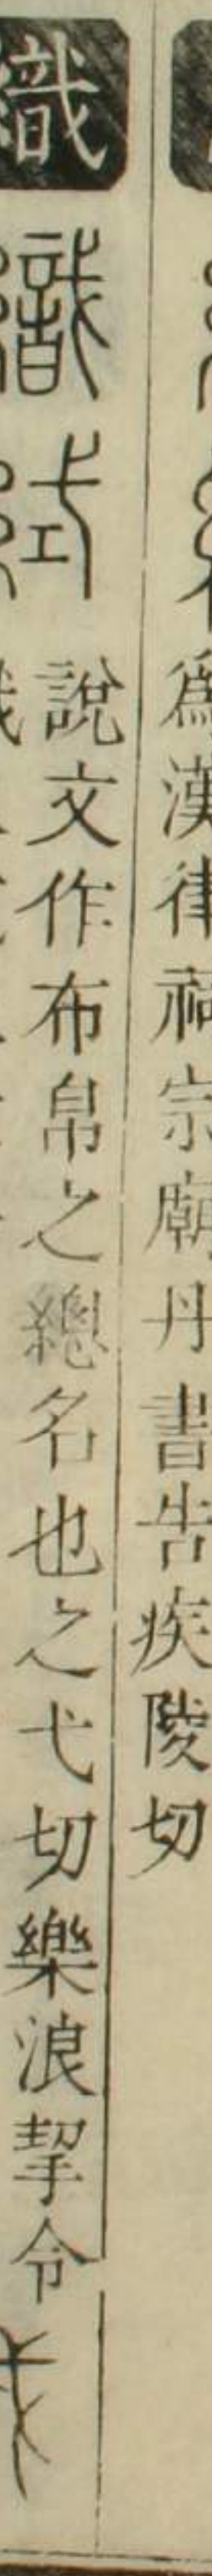 爲漢律祠宗廟丹書告疾陵切
織 說文作布帛之總名也之弋切樂浪挈令